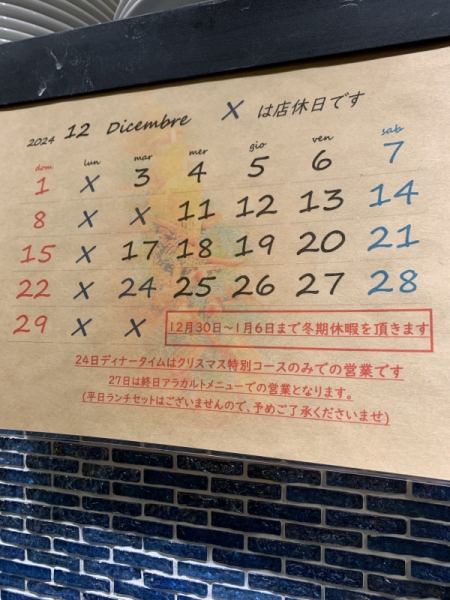 2024 12 Dicembre X は店休日です
dom lun mar mer gio ven sab
1 X 3 4 5 6 7
8 X X 11 12 13 14
15 X 17 18 19 20 21
22 X 24 25 26 27 28
29 X X 12月30日~1月6日まで冬期休暇を頂きます
24日ディナータイムはクリスマス特別コースのみでの営業です
27日は終日アラカルトメニューでの営業となります。
(平日ランチセットはございませんので、予めご了承くださいませ)